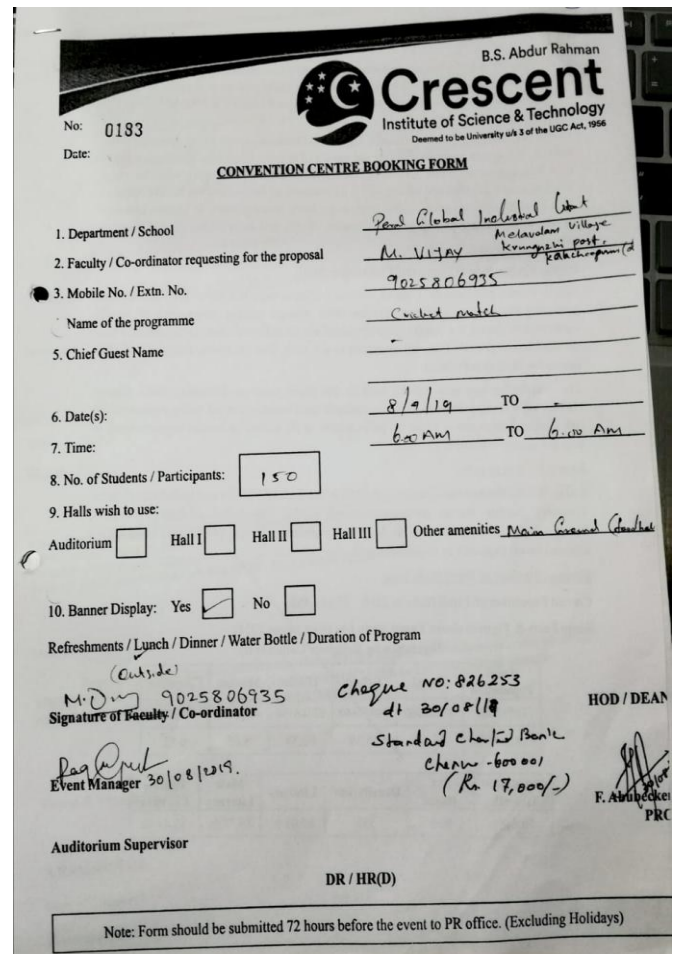 B.S. Abdur Rahman
Crescent
Institute of Science & Technology
Deemed to be University u/s 3 of the UGC Act, 1956
No: 0183
Date:
CONVENTION CENTRE BOOKING FORM
1. Department / School Global
2. Faculty / Co-ordinator requesting for the proposal M. VIJAY Melavalam Village
post.
3. Mobile No. / Extn. No. 9025806935
Name of the programme Cricket match
5. Chief Guest Name -
6. Date(s): 8/9/19 TO -
7. Time: 6.00 AM TO 6.00 AM
8. No. of Students / Participants: 150
9. Halls wish to use:
Auditorium Hall I Hall II Hall III Other amenities Main
10. Banner Display: Yes No
Refreshments / Lunch / Dinner / Water Bottle / Duration of Program
(Outside)
9025806935
Signature of Faculty / Co-ordinator
Cheque NO: 826253
dt 30/08/19
Standard Bank
-600001
(Rs. 17,000/-)
HOD / DEAN
30/08/2019.
Event Manager
PRO
Auditorium Supervisor
DR / HR(D)
Note: Form should be submitted 72 hours before the event to PR office. (Excluding Holidays)